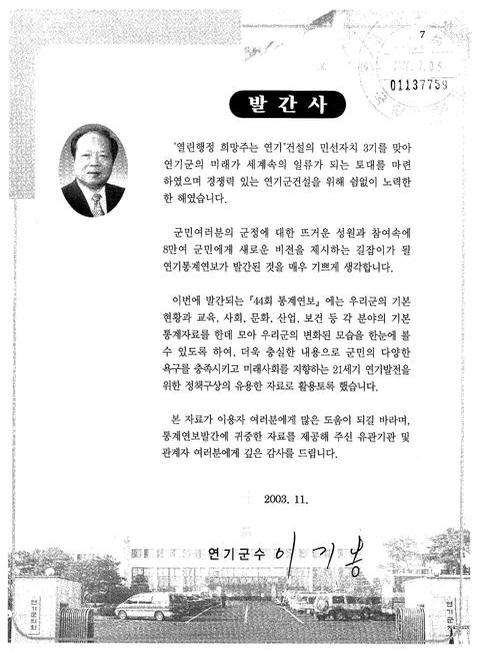 7
01137759
발간사
"열린행정 희망주는 연기"건설의 민선자치 3기를 맞아
연기군의 미래가 세계속의 일류가 되는 토대를 마련
하였으며 경쟁력 있는 연기군건설을 위해 쉼없이 노력한
한 해였습니다.
군민여러분의 군정에 대한 뜨거운 성원과 참여속에
8만여 군민에게 새로운 비전을 제시하는 길잡이가 될
연기통계연보가 발간된 것을 매우 기쁘게 생각합니다.
이번에 발간되는 『44회 통계연보』에는 우리군의 기본
현황과 교육, 사회, 문화, 산업, 보건 등 각 분야의 기본
통계자료를 한데 모아 우리군의 변화된 모습을 한눈에 볼
수 있도록 하여, 더욱 충실한 내용으로 군민의 다양한
욕구를 충족시키고 미래사회를 지향하는 21세기 연기발전을
위한 정책구상의 유용한 자료로 활용토록 했습니다.
본 자료가 이용자 여러분에게 많은 도움이 되길 바라며,
통계연보발간에 귀중한 자료를 제공해 주신 유관기관 및
관계자 여러분에게 깊은 감사를 드립니다.
2003. 11.
연기군수 이기봉
연기군의회
연기군